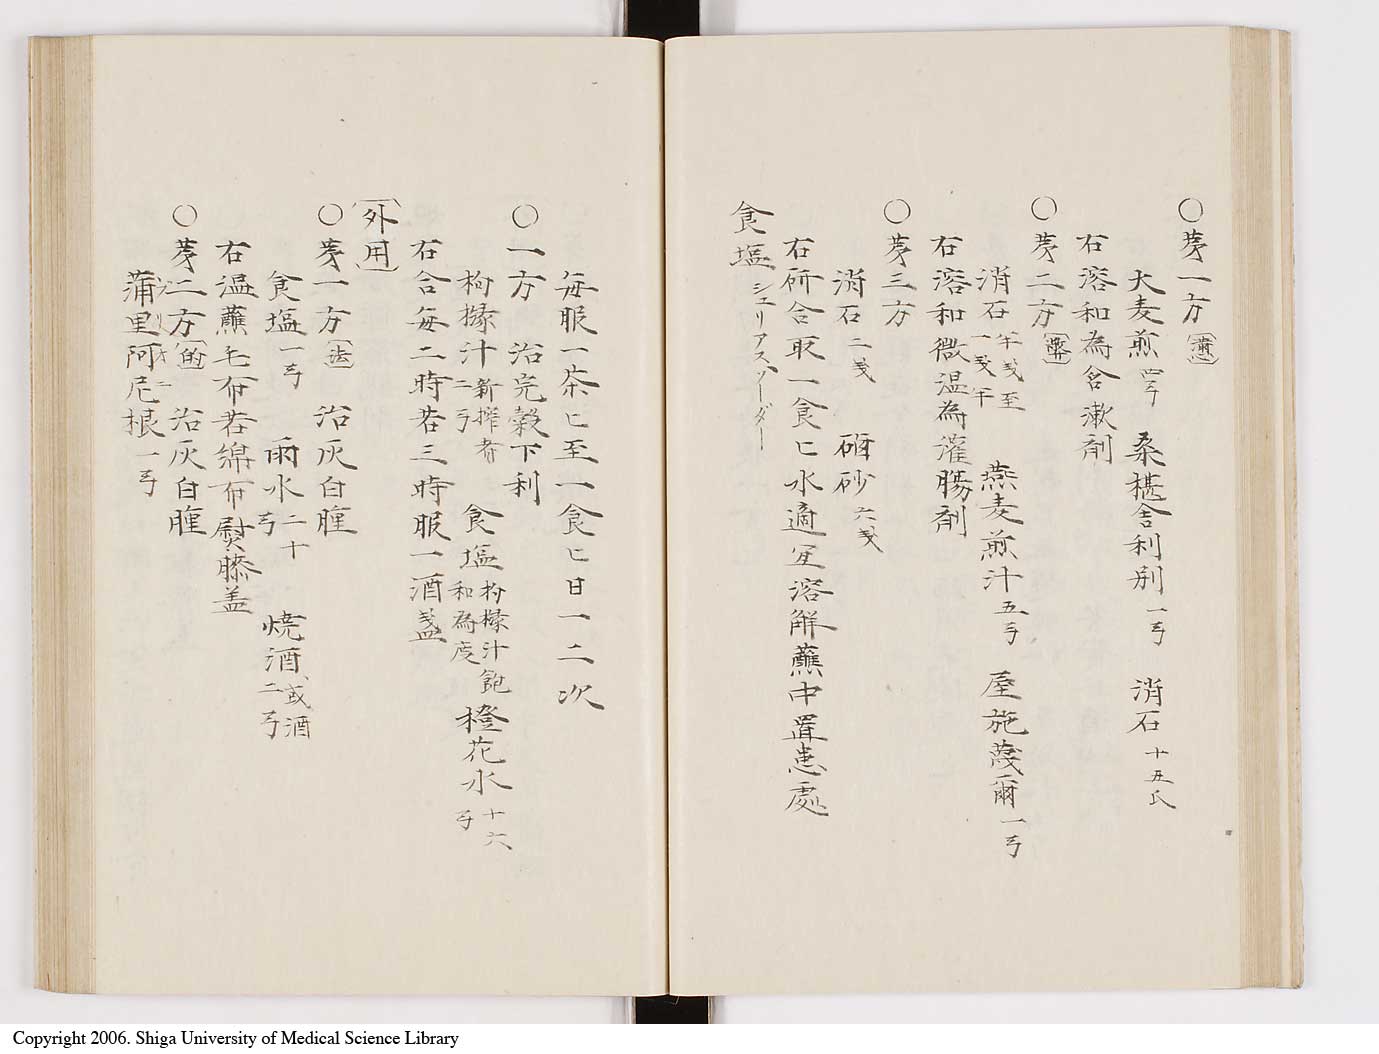 ○第一方
大麦煎 四弓 桑椹舎利別 一弓 消石 十五氏
右溶和為含漱剤
○第二方
消石 半戔至一戔半 燕麦煎汁 五弓 屋施蔑爾 一弓
右溶和微温為灌腸剤
○第三方
消石 二戔 硇砂 六戔
右研合取一食匕水適宜溶解蘸巾置患處
食塩 シュリアスソーダー
毎服一茶匕至一食匕日一二次
○一方 治完穀下利
枸櫞汁 新搾者二弓 食塩 枸櫞汁飽和為度 橙花水 十六弓
右合毎二時若三時服一酒盞
(外用)
○第一方(法) 治灰白腫
食塩 一弓 雨水 二十弓 焼酒 或酒二弓
右温蘸毛布若綿布熨膝盖
○第二方(的) 治灰白腫
蒲里阿尼根 一弓
Copyright 2006. Shiga University of Medical Science Library